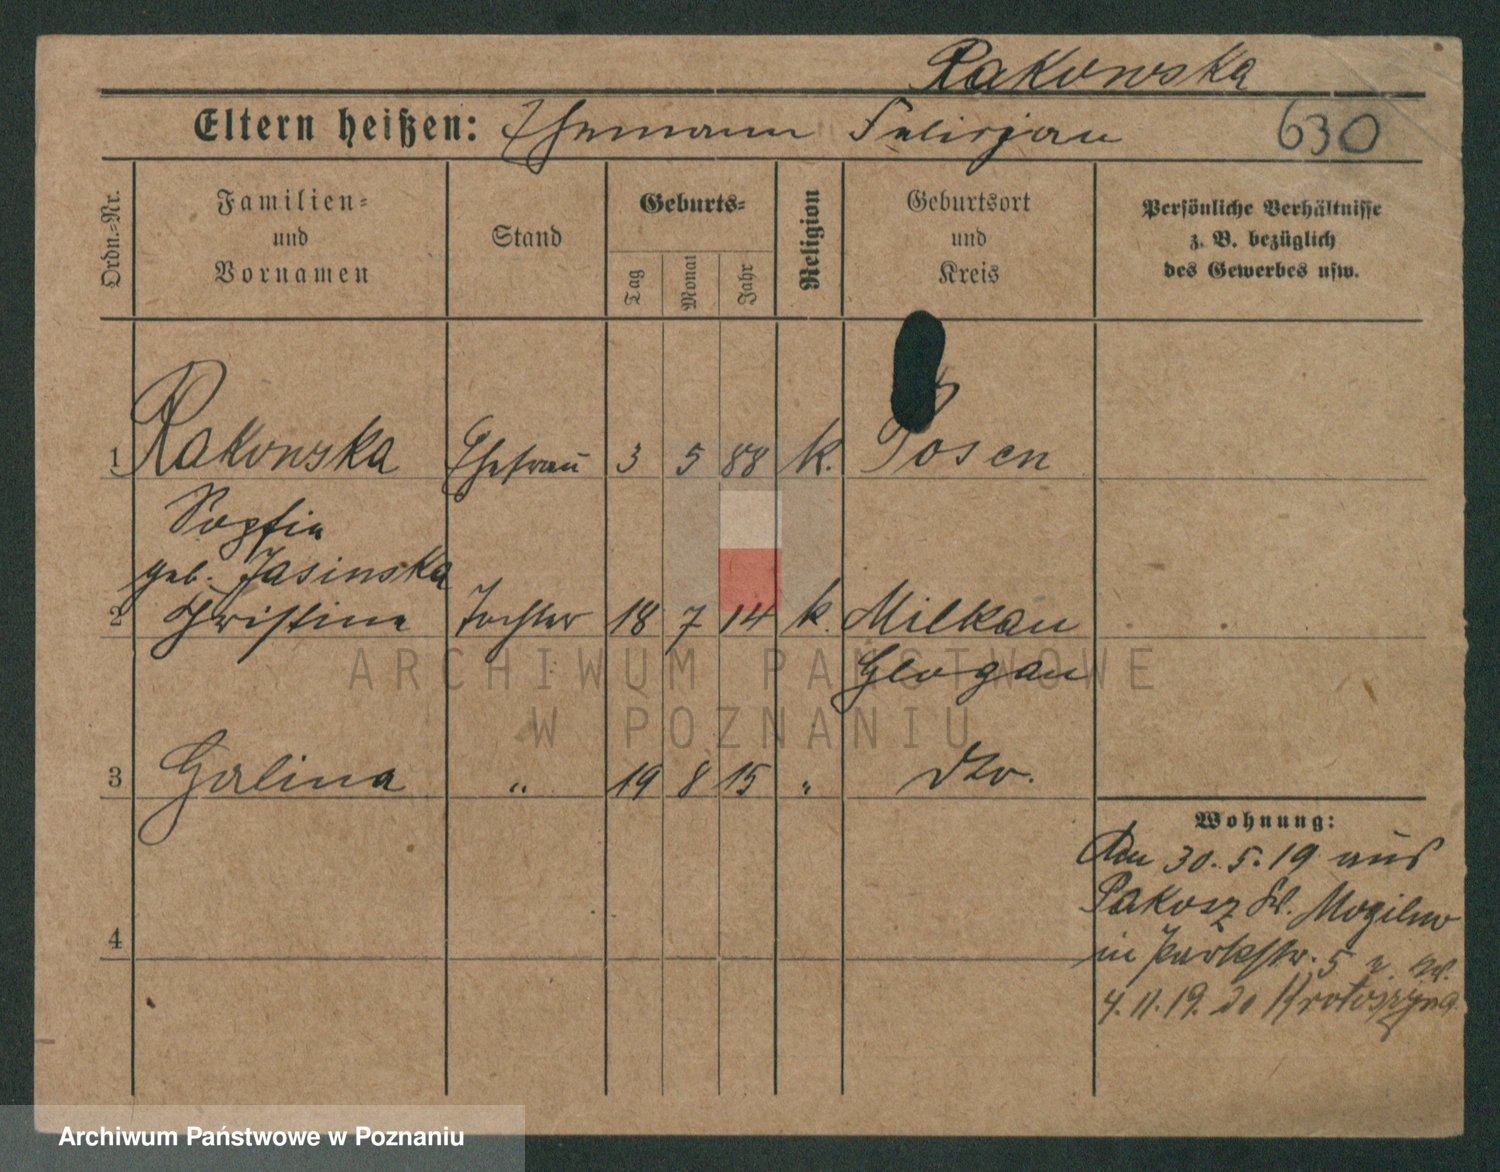 Rakowska
Eltern heißen: Ehemann Felicjan 630
Ordn.-Nr.
Familien-
und
Vornamen
Stand
Geburts-
Tag
Monat
Jahr
Religion
Geburtsort
und
Kreis
Persönliche Verhältnisse
z. B. bezüglich
des Gewerbes usw.
1 Rakowska Ehefrau 3 5 88 k. Posen
Sophie
geb. Jasinska
2 Christine Tochter 18 7 14 k. Milkau
Glogau
3 Halina " 19 8 15 " dto.
4
Wohnung:
Am 30.5.19 aus
Pakosz Kr. Mogilno
in Parkstr. 5
4.11.19. do Krotoszyna
ARCHIWUM PAŃSTWOWE
W POZNANIU
Archiwum Państwowe w Poznaniu